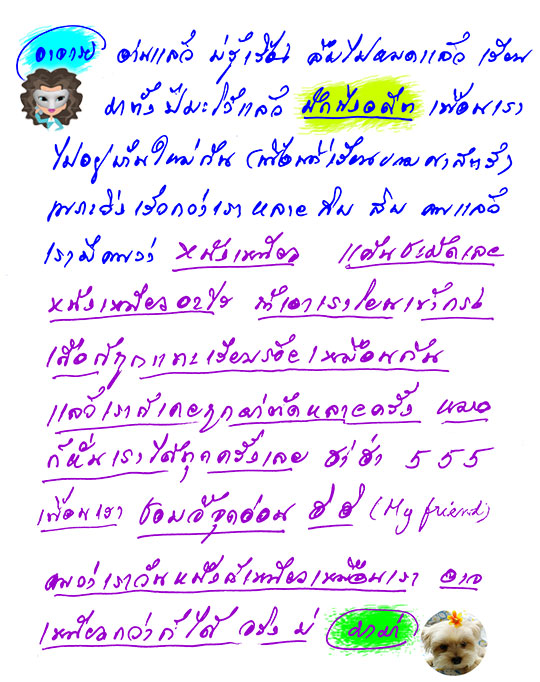 อาจารย์ อ่านแล้ว บ่ฮู้เรื่อง ลืมไปหมดแล้ว เรียน
มาทั้งปีมะโว้แล้ว นึกถึงอดีต เพื่อนเรา
ไปอยู่บ้านใหม่กัน (เพื่อนที่เรียน
เพราะซิ่งเร็วกว่าเราหลาย สิบ สิบ คนแล้ว
เรามีคนว่า หนังเหนียว ชะมัดเลย
หนังเหนียวอะไร ถ้าเอาเราโยนเข้ากรง
เสือก็ถูกแทะเรียบร้อยเหมือนกัน
แล้วเราก็เคยถูกผ่าตัดหลายครั้ง หมอ
ก็หั่นเราได้ทุกครั้งเลย ฮ่า ฮ่า 5 5 5
เพื่อนเรา ชอบจี้จุดอ่อน ฮิ ฮิ (My friend)
คนว่าเราวันหนึ่งก็เหนียวเหมือนเรา อาจ
เหนียวกว่าก็ได้ จริง บ่